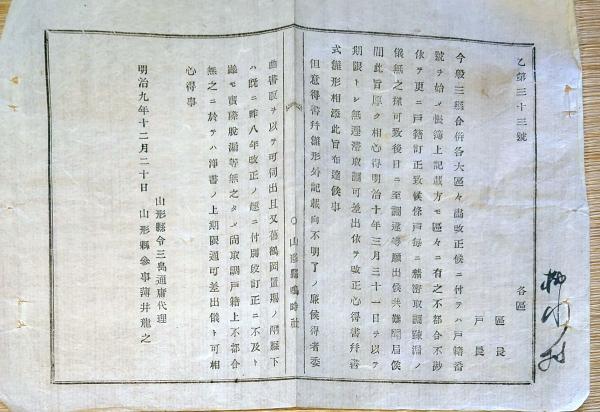 乙第三十三號
各區
區長
戸長
今般三縣合併各大區々畫改正候ニ付テハ戸籍番
號ヲ始メ帳簿上記載方モ區々ニ有之不都合不尠
依テ更ニ戸籍訂正致候條戸毎ニ精密取調疎漏ノ
儀無之樣可致後日ニ至調違等願出候共難聞屆候
間此旨厚ク相心得明治十年三月三十一日ヲ以テ
期限トシ無遲滯取調可差出依テ改正心得書幷書
式雛形相添此旨布達候事
但意得書幷雛形外記載向不明了ノ廉候得者委
曲書取ヲ以テ可伺出且又舊鶴岡置賜ノ兩縣下
ハ既ニ昨八年改正ノ趣ニ付別段訂正ニ不及ト
雖モ實際脫漏等無之タメ尚取調戸籍上不都合
無之ニ於テハ淨書ノ上期限通可差出儀ト可相
心得事
明治九年十二月二十日
山形縣令三島通庸代理
山形縣參事薄井龍之
〇山形縣鳴時社